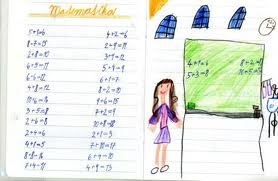 Matematika
5+1=6 4+2=6
8+7=15 2+9=11
2+8=10 3+9=12
4+7=11 5+4=9
6+6=12 6+1=7
4+8=12 3+5=8
9+6=15
5+3=8 2+5=7
2+6=8 10+8=18
2+4=6 2+1=3
4+1=5 7+10=17
8+8=16 6+4=10
7+4=11 4+9=13
4+4=8 8+2=10
5+3=8 10+5=15